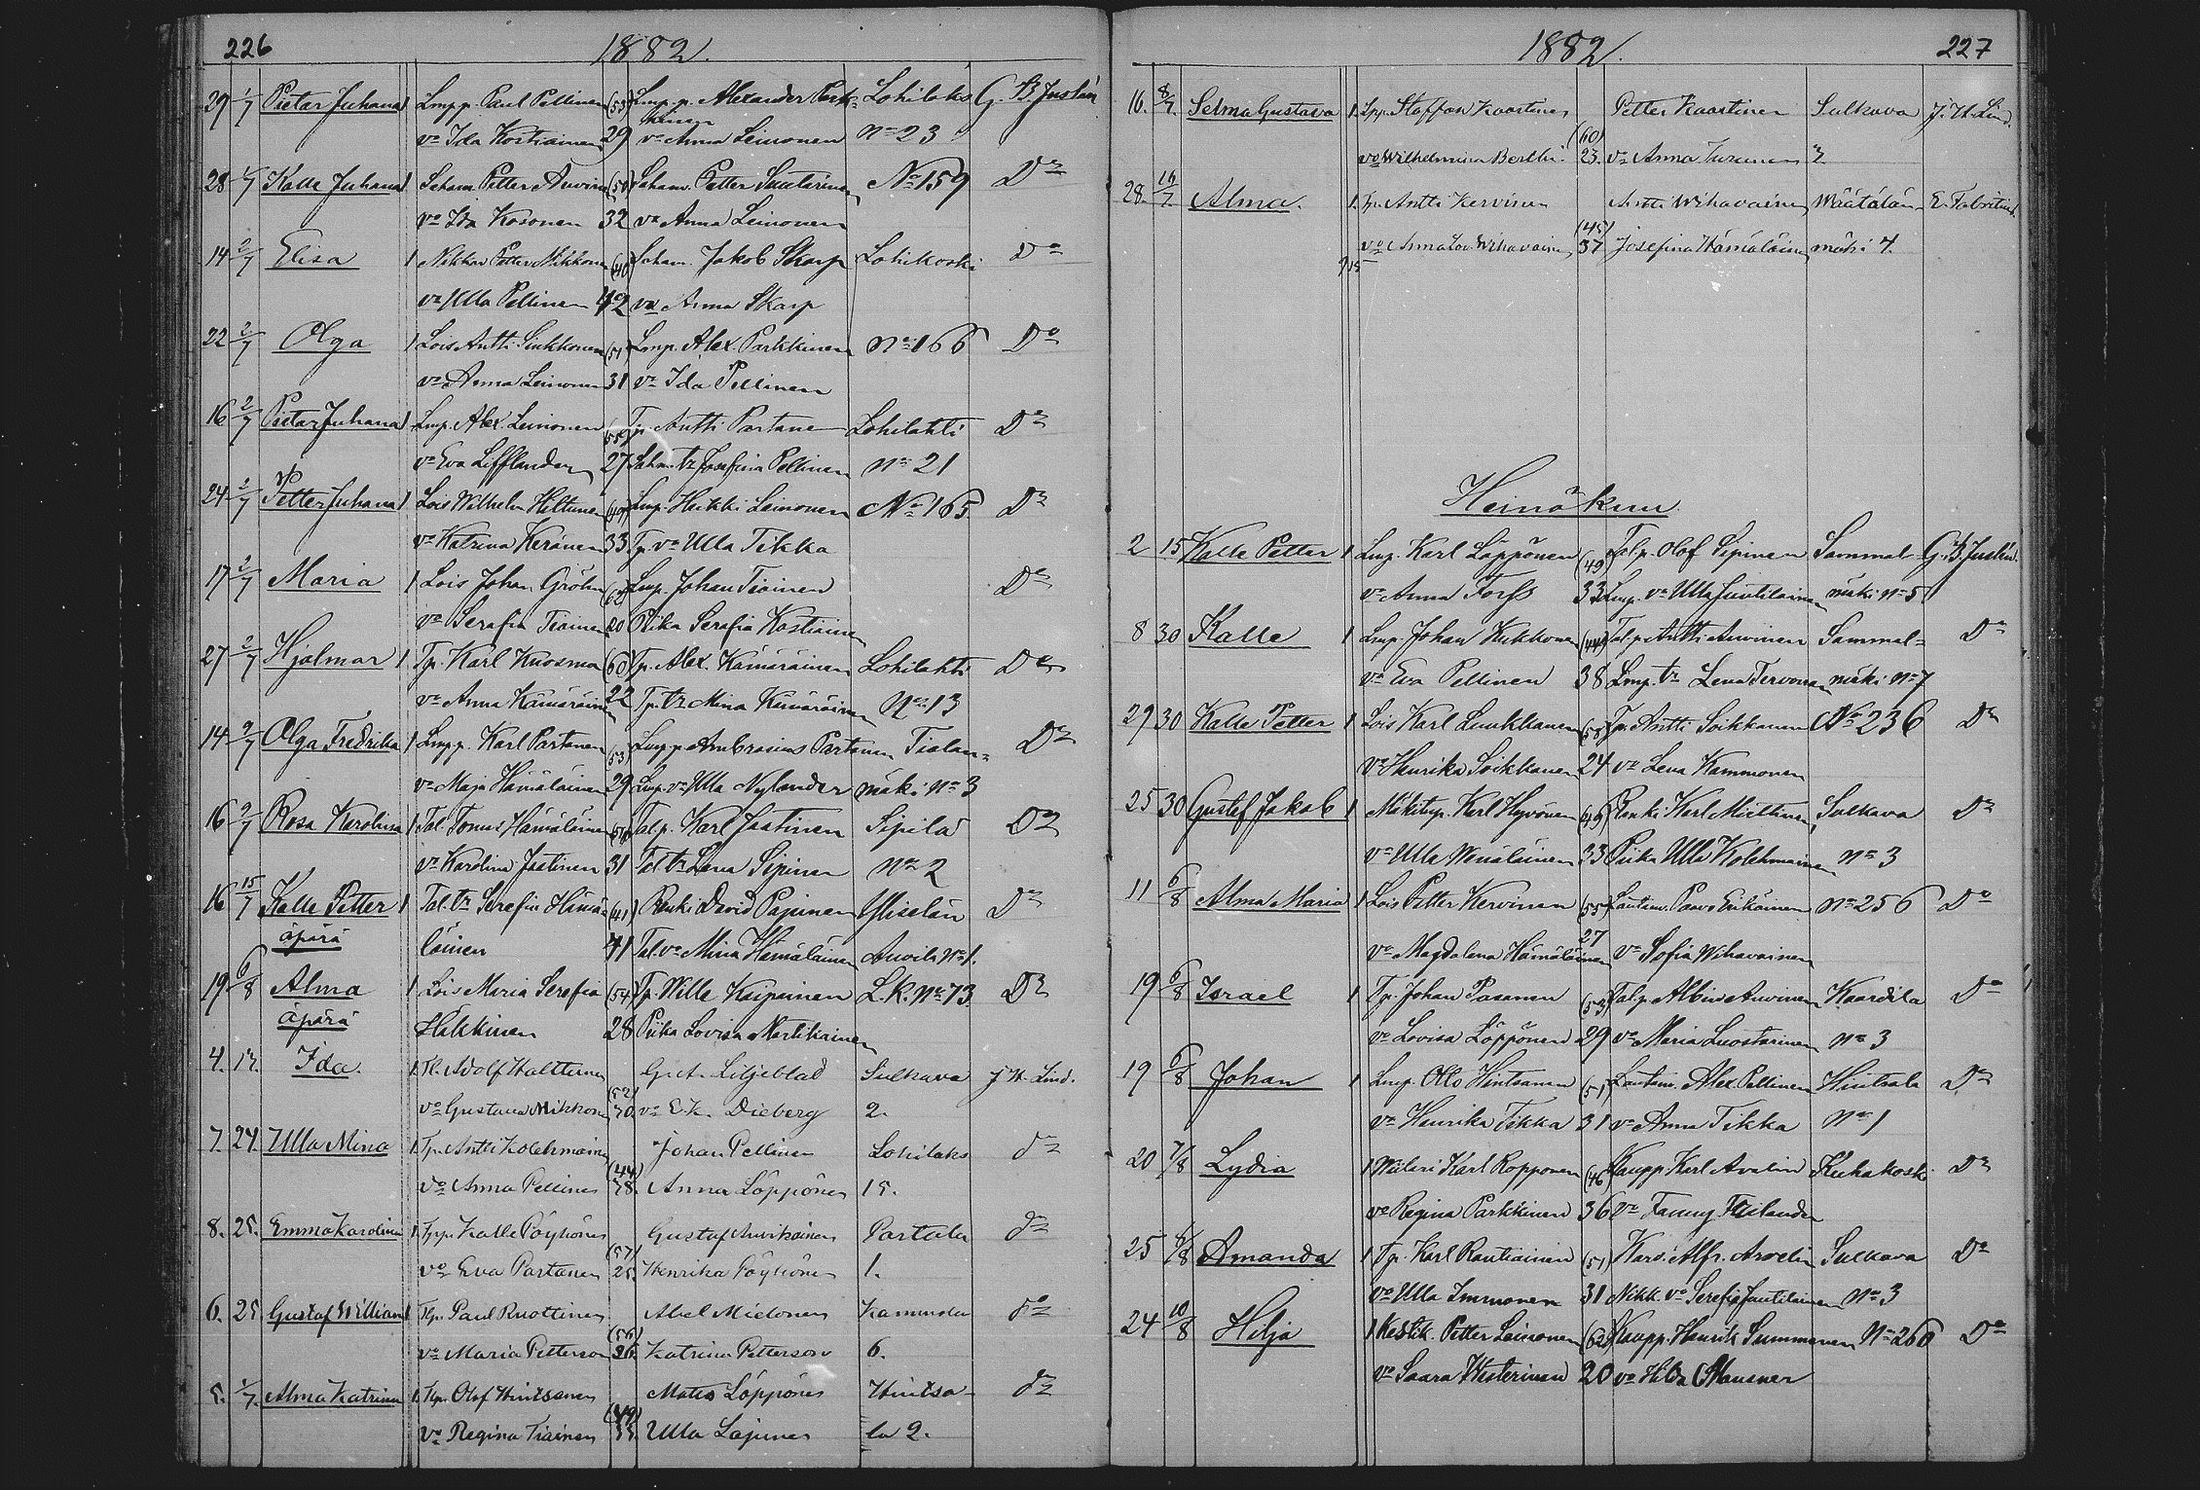 226 1882.
29 1/7 Pietar Juhana 1 Lmpp. Paul Pellinen (53) Lmp. p. Alexander Park- Lohilaks G. B. Juslén
kinen
vo Ida Kostiainen 29 vo Anna Leinonen No 23
28 1/7 Kalle Juhana 1 Petter Auvinen (50) Petter No 159 Do
vo Ida Kosonen 32 vo Anna Leinonen
14 2/7 Elisa 1 Nikkar Petter Mikkonen (40) Jakob Skarp Lohikoski Do
vo Ulla Pellinen 42 vo Anna Skarp
22 2/7 Olga 1 Lois Antti Sinkkonen (51) Lmp. Alex. Parkkinen No 166 Do
vo Anna Leinonen 31 vo Ida Pellinen
16 2/7 Pietar Juhana 1 Lmp. Alex Leinonen (55) Tp. Antti Partanen Lohilahti Do
vo Eva Lifflander 27 tr Josefina Pellinen No 21
24 2/7 Petter Juhana 1 Lois Wilhelm Hiltunen (49) Lmp. Heikki Leinonen No 165 Do
vo Katrina Keränen 33 Tp. vo Ulla Tikka
17 2/7 Maria 1 Lois Johan Gröhn (62) Lmp. Johan Tiainen Do
vo Serafia Tiainen 20 Piika Serafia Kostiainen
27 2/7 Hjalmar 1 Tp. Karl Kuosma (60) Tp. Alex. Kämäräinen Lohilahti Do
vo Anna Kämäräinen 22 Tp. tr Mina Kämäräinen No 13
14 9/7 Olga Fredrika 1 Lmpp. Karl Partanen (53) Lmpp. Ambrosius Partanen Tialan- Do
vo Maja Hämäläinen 29 Lmp. vo Ulla Nylander mäki No 3
16 9/7 Rosa Karolina 1 Tal. Tomas Hämäläinen (51) Talp. Karl Jaatinen Sipilä Do
vo Karolina Jaatinen 31 Tal. tr Lena Sipinen No 2
16 15/7 Kalle Petter 1 Tal. tr Serafia Hämä- (41) Renki David Pajunen Do
äpärä läinen 41 Tal. vo Mina Hämäläinen Auvila No 1.
19 6/8 Alma 1 Lois Maria Serafia (54) Tp. Wille Kaipainen L.K. No 73 Do
äpärä Hekkinen 28 Piika Lovisa Martikainen
4. 17. Ida. 1. Adolf Halttunen G. A. Liljeblad Sulkava J. H. Lind.
vo Gustava Mikkonen (52) 30. vo E. K. Dieberg 2.
7. 24. Ulla Mina 1. Tp. Antti Kolehmainen Johan Pellinen Lohilaks do
vo Anna Pellinen (44) 38. Anna Löppönen 15.
8. 25. Emma Karolina 1. Kalle Pöyhönen Gustaf Auvikainen Partala do
vo Eva Partanen (57) 25. Henrika Pöyhönen 1.
6. 25. Gustaf William 1 Tp. Paul Ruottinen Abel Mielonen do
vo Maria Petterson (56) 26. Katrina Petterson 6.
5. 1/7. Alma Katrina 1. Tp. Olof Hintsanen Mats Löppönen Hintsa- do
vo Regina Tiainen (49) 33. Ulla Lajunen la 2.
1882. 227
16. 8/7. Selma Gustava 1. Staffan Kaartinen Petter Kaartinen Sulkava J. H. Lind.
vo Wilhelmina Bertlin (60) 23. vo Anna Turunen 3.
28. 16/7 Alma. 1. Tp. Antti Kervinen Antti Wihavainen Määtälän- E. Fabritius.
vo Anna Lov. Wihavainen (45) 37 Josefina Hämäläinen mäki 4.
Heinäkuu
2 15 Kalle Petter 1 Lmp. Karl Löppönen (49) Talp. Olof Sipinen Sammal- G. B. Juslén.
vo Anna Forss 33 Lmp. vo Ulla Juutilainen mäki No 5
8 30 Kalle 1 Lmp. Johan Kukkonen (44) Talp. Antti Auvinen Sammal- Do
vo Eva Pellinen 38 Lmp. tr Lena Tervonen mäki No 7
29 30 Kalle Petter 1 Lois Karl Luukkanen (58) Tp. Antti Soikkanen No 236 Do
vo Henrika Soikkanen 24 vo Lena Kammonen
25 30 Gustaf Jakob 1 Mäkitup. Karl Hyvönen (49) Renki Karl Miettinen Sulkava Do
vo Ulla Wenäläinen 33 Piika Ulla Kolehmainen No 3
11 6/8 Alma Maria 1 Lois Petter Kervinen (55) Lautam. Paavo Eräkäinen No 256 Do
vo Magdalena Hämäläinen 27 vo Sofia Wihavainen
19 6/8 Israel 1 Tp. Johan Pasanen (53) Talp. Albin Auvinen Kaartila Do
vo Lovisa Löppönen 29 vo Maria Luostarinen No 3
19 6/8 Johan 1 Lmp. Otto Hintsanen (51) Lautam. Alex Pellinen Hintsala Do
vo Henrika Tikka 31 vo Anna Tikka No 1
20 7/8 Lydia 1 Karl Ropponen (46) Kaupp. Karl Avelin Kuhakoski Do
vo Regina Parkkinen 36 vo Fanny
25 6/8 Amanda 1 Tp. Karl Rautiainen (51) Alfr. Arvelin Sulkava Do
vo Ulla Immonen 31 Nikk. vo Serafia Juutilainen No 3
24 10/8 Hilja 1 Kestik. Petter Leinonen (62) Kaupp. Henrik Summanen No 260 Do
vo Saara Westerinen 20 vo Hilda